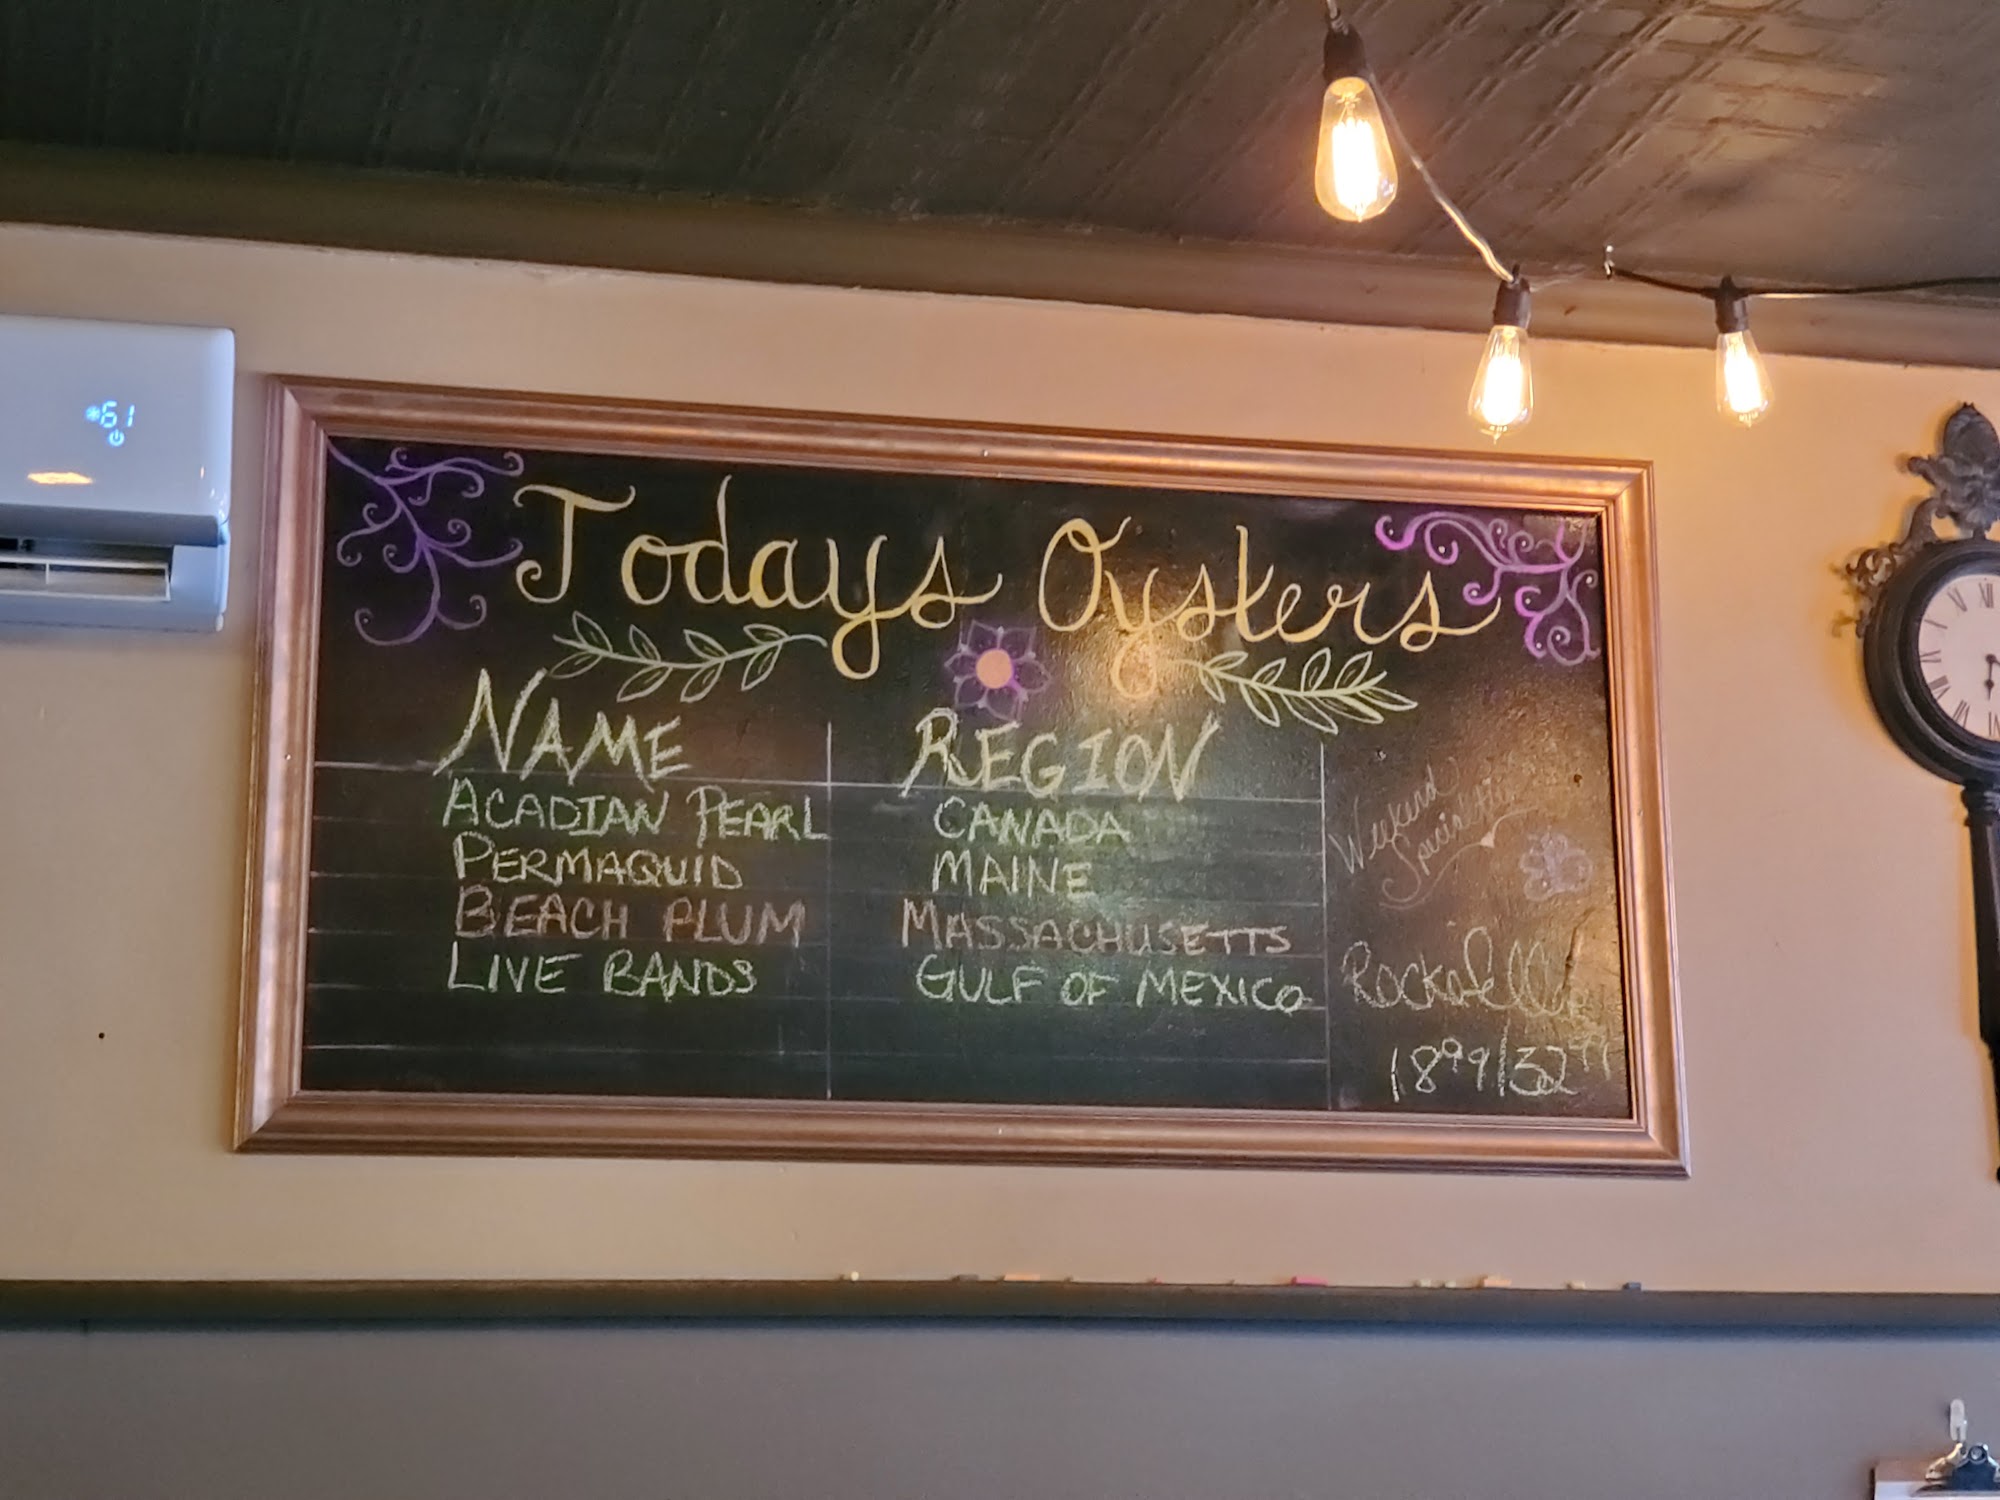 61
Todays Oysters
NAME REGION
ACADIAN PEARL CANADA
PERMAQUID MAINE
BEACH PLUM MASSACHUSETTS
LIVE BANDS GULF OF MEXICO
Weekend
Specialties
Rockafella
18⁹⁹/32⁹⁹